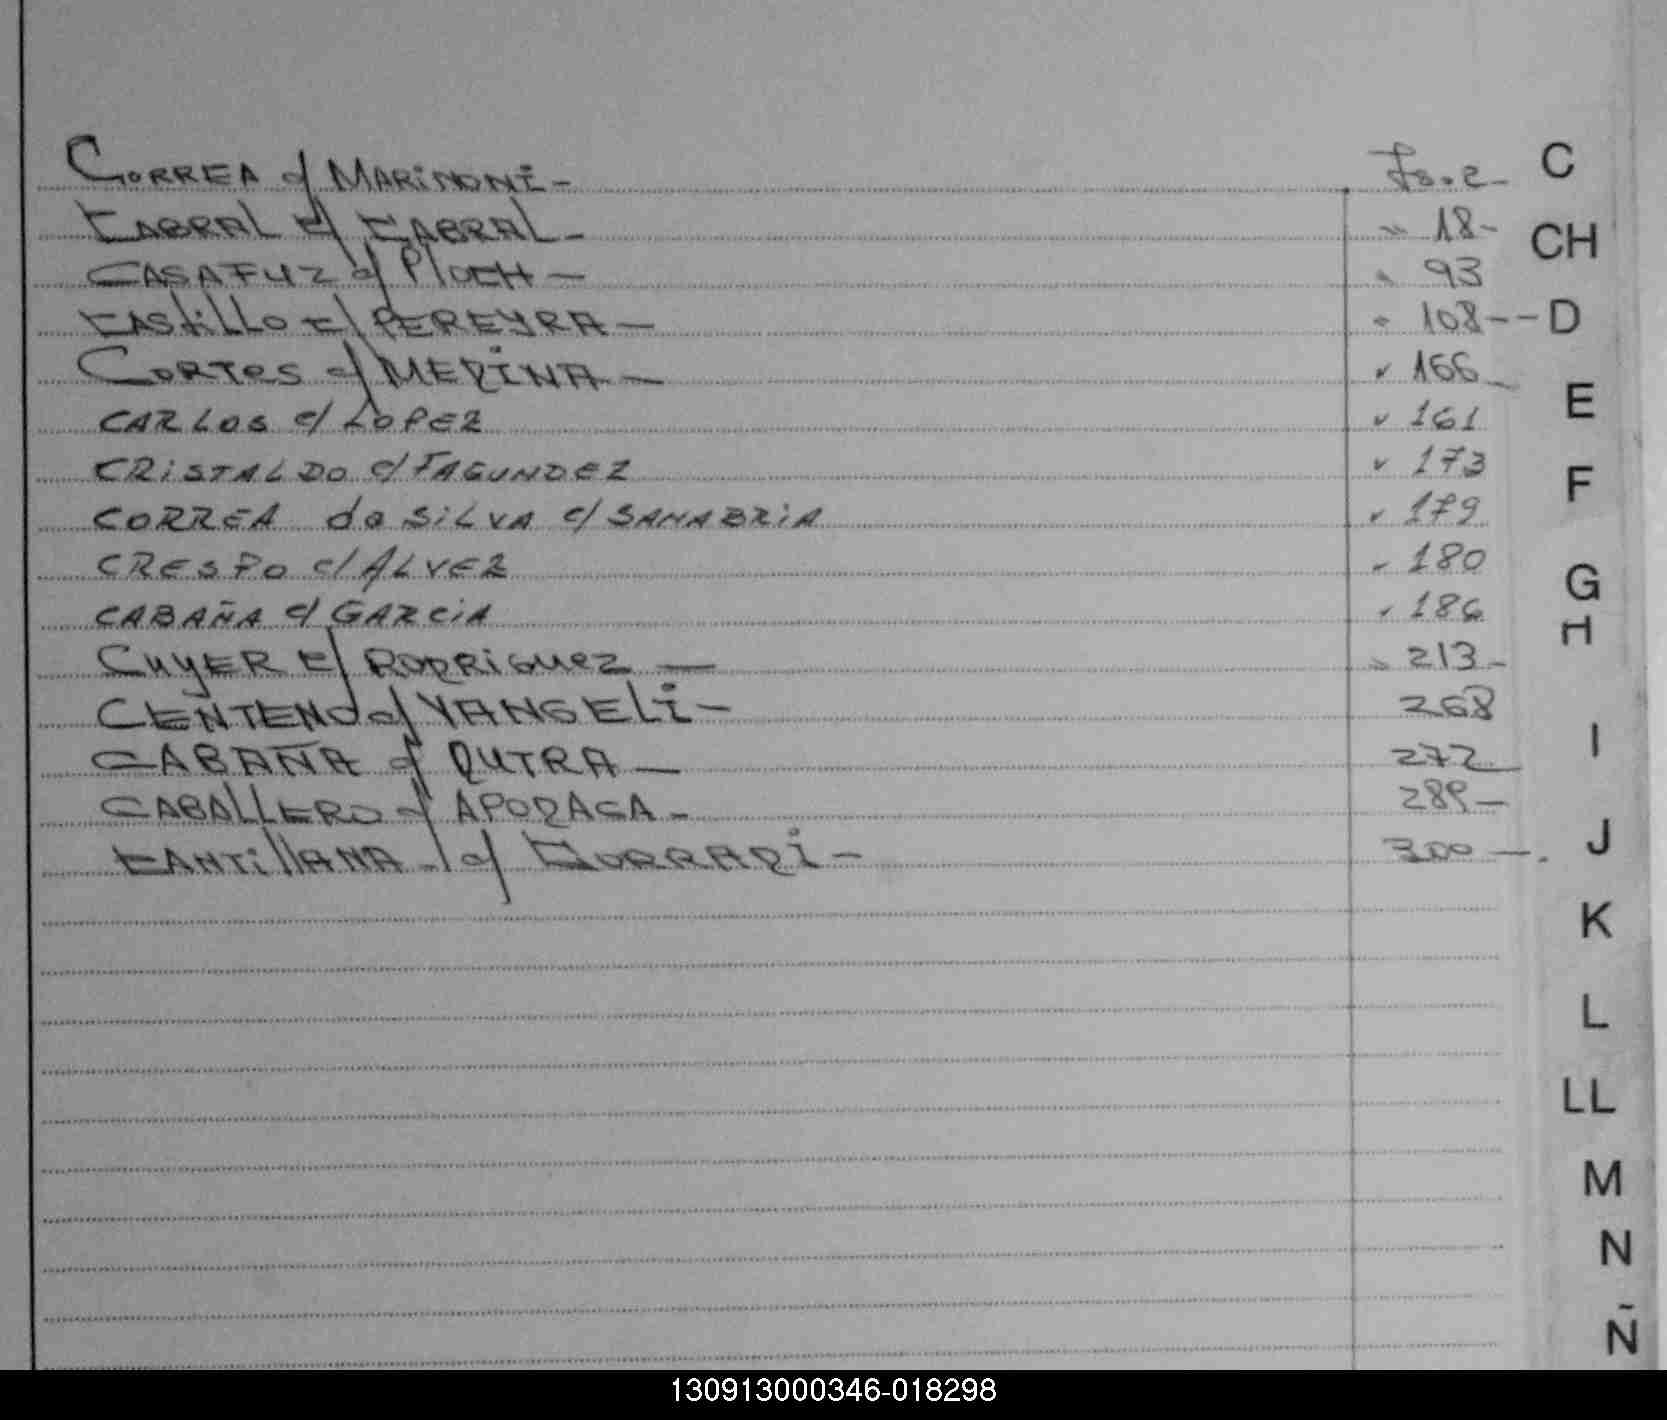 CORREA c/ MARINONI - Fo. 2 -
CABRAL c/ CABRAL - " 18 -
CASAFUZ c/ PLOCH - " 93
CASTILLO c/ PEREYRA - " 108 --
CORTES c/ MEDINA - " 166 -
CARLOS c/ LOPEZ " 161
CRISTALDO c/ FAGUNDEZ " 173
CORREA da SILVA c/ SANABRIA " 179
CRESPO c/ ALVEZ " 180
CABAÑA c/ GARCIA " 186
CUYER c/ RODRIGUEZ - " 213 -
CENTENO c/ VANGELI - 268
CABAÑA c/ DUTRA - 272
CABALLERO c/ APODACA - 289 -
CANTILLANA - c/ 300 -.
C
CH
D
E
F
G
H
I
J
K
L
LL
M
N
Ñ
130913000346-018298